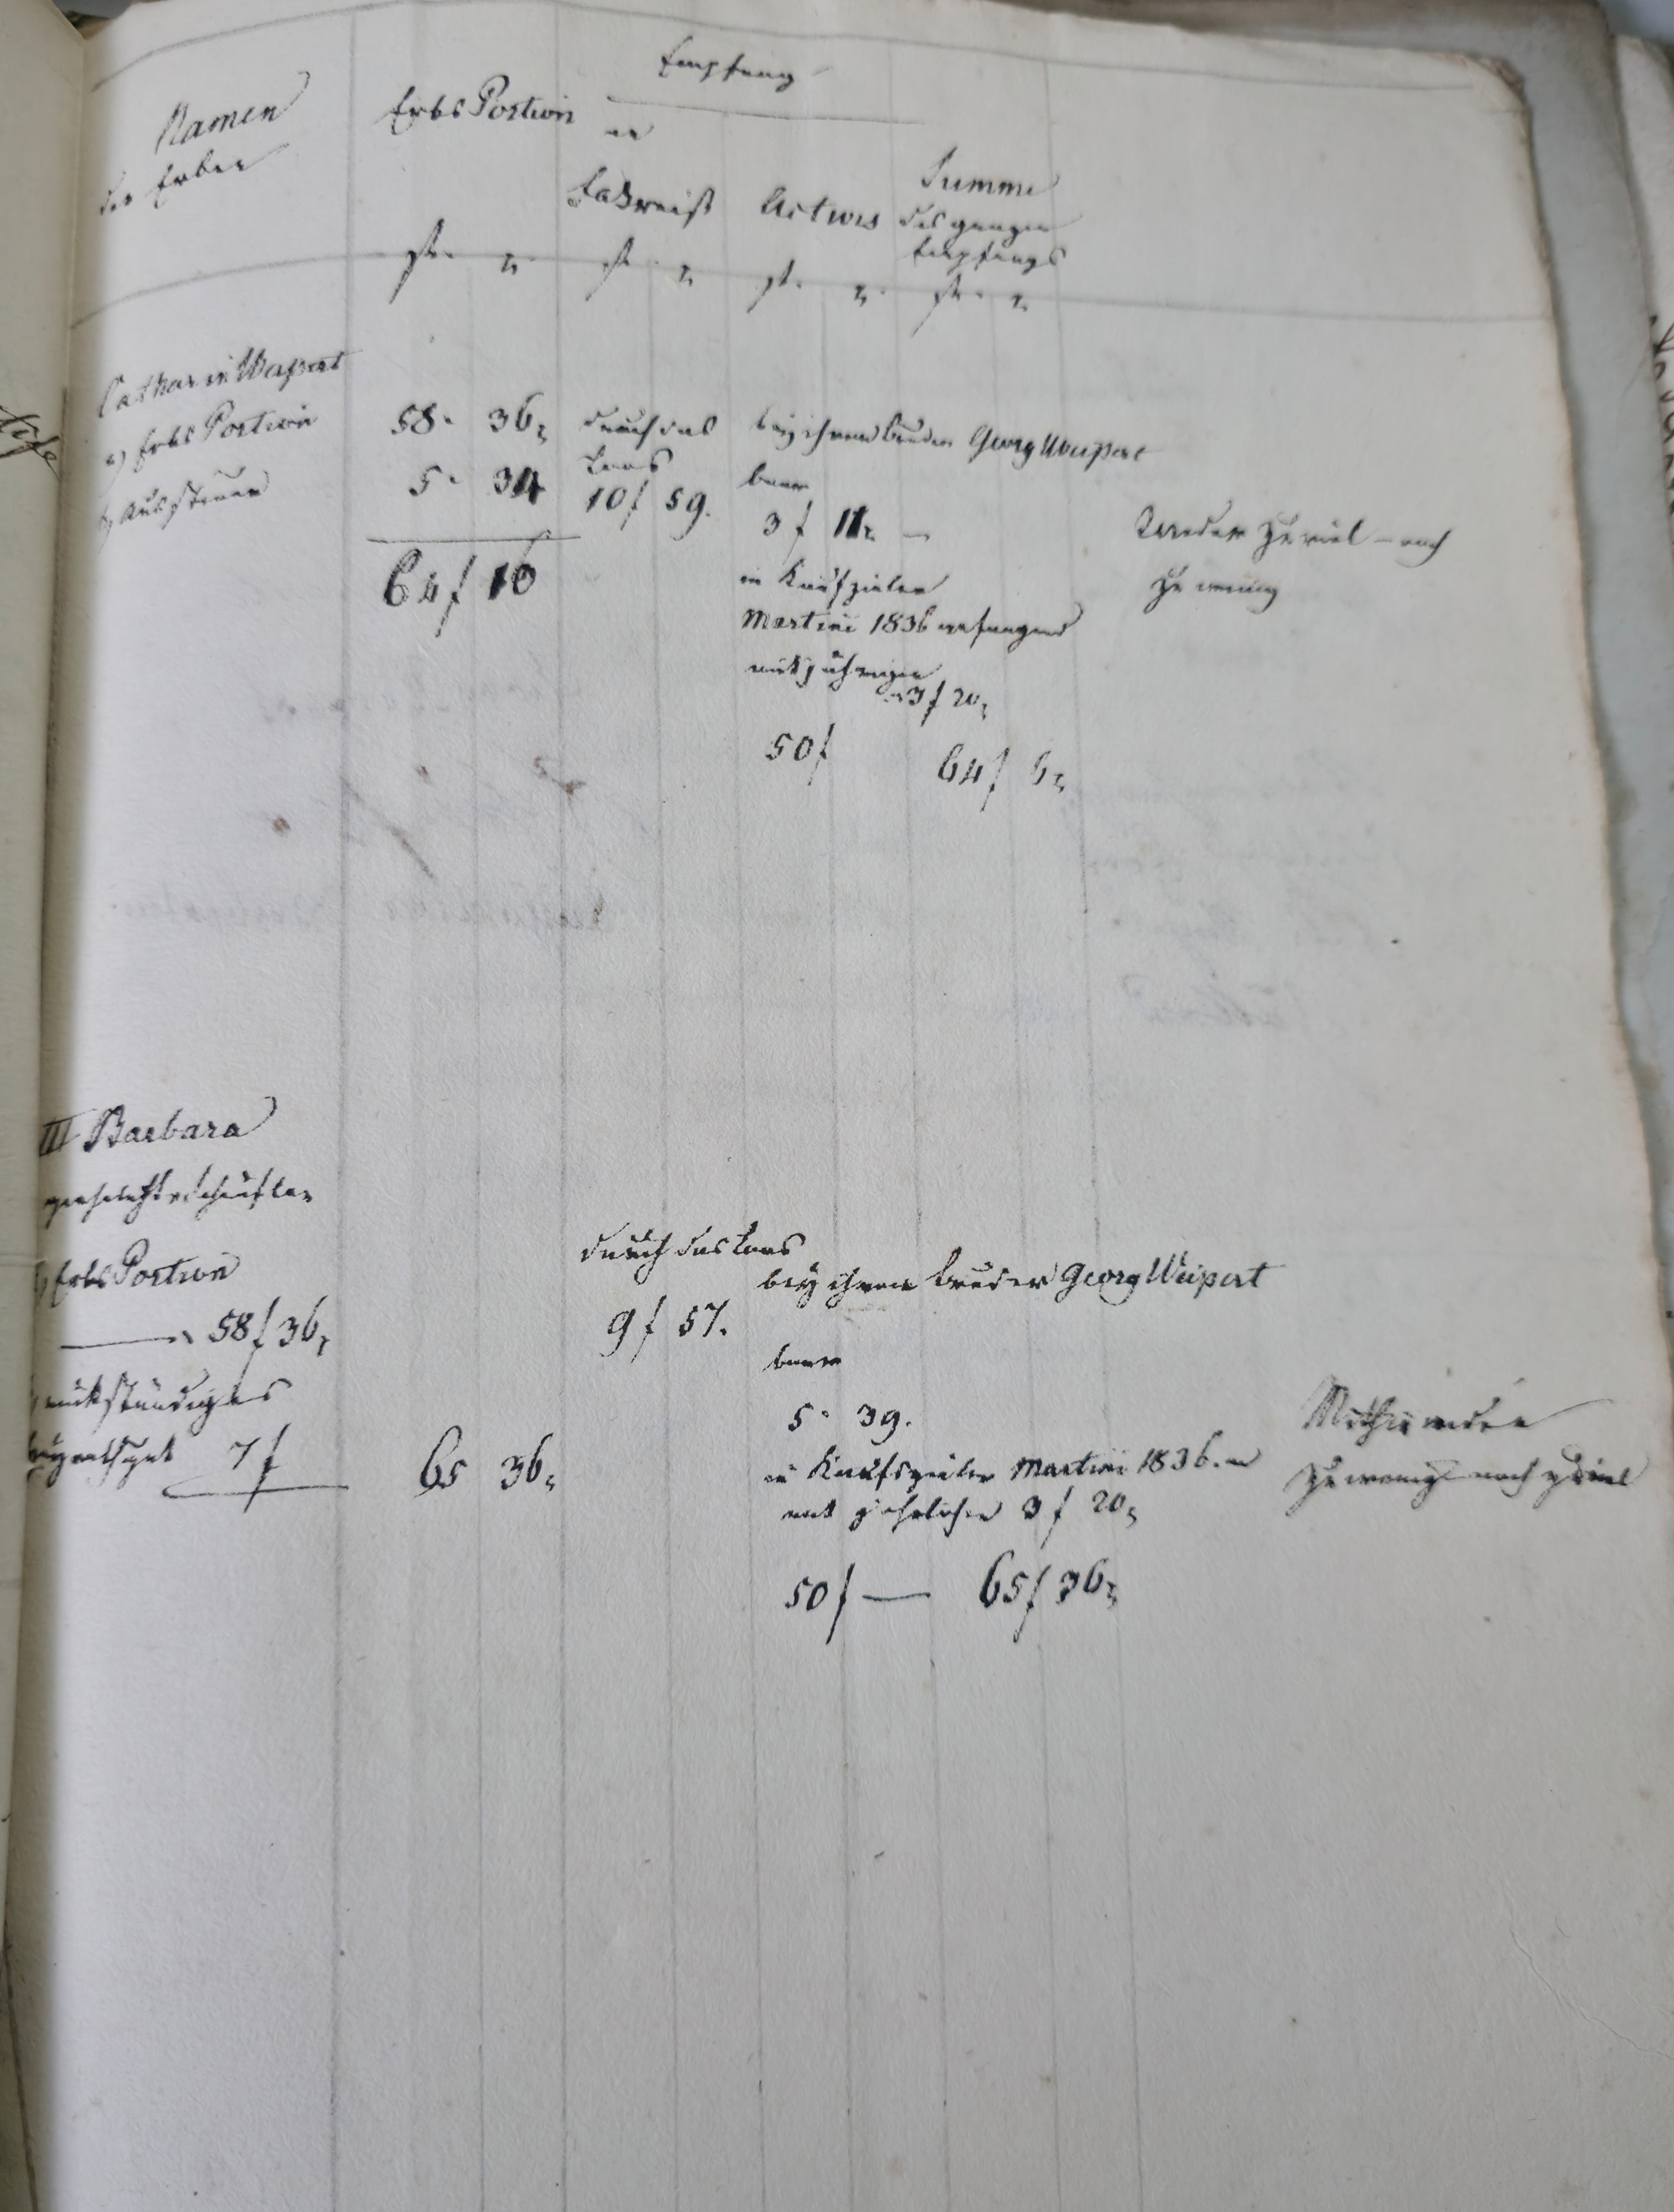 Namen
der Erben
Erbs Portion
Empfang
an
Fahrniß
Activis
Summe
des ganzen
Empfangs
fl. x. fl. x. fl. x. fl. x.
Catharin Weipert
a) Erbs Portion 58 " 36 x
b) Aussteuer 5 " 34
64 f 10
durch das
Loos
10 f 59.
bey ihrem Bruder Georg Weipert
baar
3 f 11 x —
in Kaufzieler
Martini 1836 anfangend
mit jährigen
a 3 f 20 x
50 f 64 f 6 x
Weder zu viel – noch
zu wenig
III Barbara
Erbs Portion
58 f 36 x
rükständiges
7 f
65 36 x
durch das Loos
9 f 57.
bey ihrem Bruder Georg Weipert
baar
5 " 39.
in Kaufszieler Martini 1836. an
mit jährlichen 3 f 20 x
50 f — 65 f 36 x
Mithin weder
zu wenig noch zu viel